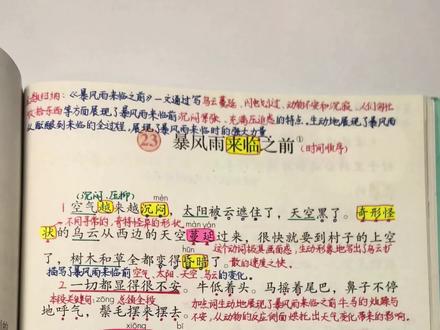 《暴风雨来临之前》一文通过写乌云蔓延、闪电划过、动物不安和沉寂、人们匆忙
收拾东西等方面展现了暴风雨来临前沉闷紧张、充满压迫感的特点。生动地展现了暴风雨
从酝酿到来临的全过程,展现了暴风雨来临时的强大力量
23 暴风雨来临之前① (时间顺序)
(沉闷、压抑) mèn
1 空气越来越沉闷,太阳被云遮住了,天空黑了。奇形怪
不同寻常的,奇特怪异的形状。 màn yán
状的乌云从西边的天空蔓延过来,很快就要到村子的上空
hūn 这个动词极具画面感,生动形象地写出了乌云扩
了,树木和草全都变得昏暗了。 散的速度之快
描写了暴风雨来临前空气、太阳、天空、乌云的变化。
2 一切都显得很不安。牛低着头。马摇着尾巴,鼻子不停
本段关键句 总领全段 加点词生动地展示了暴风雨来临前牛马的烦躁与
地呼气,鬃毛摆来摆去。 不安,从动物的反应侧面烘托出天气变化带来的影响。
xiōng bí